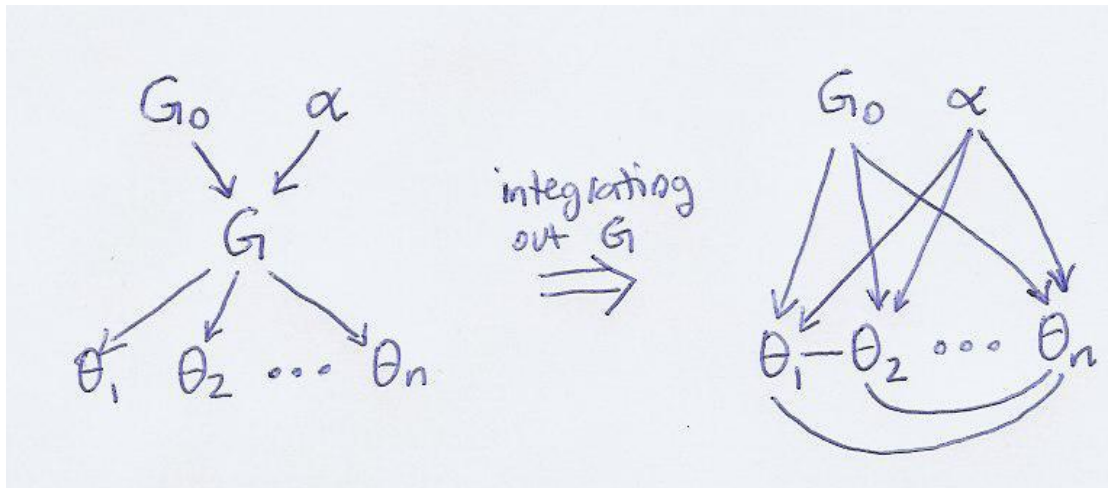 G₀ α
G
θ₁ θ₂ ... θₙ
integrating
out G
⇒
G₀ α
θ₁ — θ₂ ... θₙ